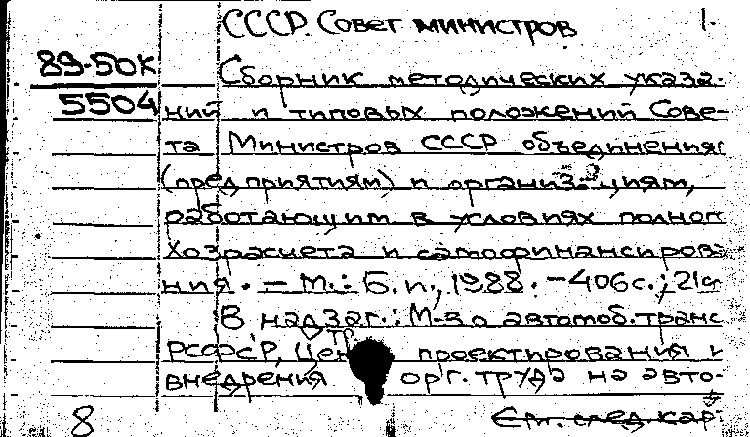 СССР. Совет министров
1.
89-50К
5504
Сборник методических указа-
ний и типовых положений Сове-
та Министров СССР объединения
(предприятиям) и организациям,
работающим в условиях полног
хозрасчета и самофинансиров
ния. — М.: Б. и., 1988. - 406 с.; 21с
В надзаг.: М-во автомоб. транс
РСФСР, Центр проектирования и
внедрения орг. труда на авто-
См. след. кар
8